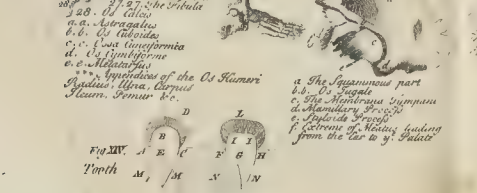 27.27. The Fibula
128. Os Calcis
a.a. Astragalus
b.b. Os Cuboides
c.c. Ossa Cuneiformia
d. Os Cymbiforme
e.e. Metatarsus
*** Appendices of the Os Humeri
Radius, Ulna, Carpus
Ileum. Femur &c.
a The Squammous part
b.b. Os Jugale
c. The Membrana Tympani
d. Mamillary Process
e. Styloide Process
f. Extreme of Meatus leading
from the Ear to y.e Palate
D
B
A E C
Fig. XIV.
Tooth
M, /M
L
I I
F G H
N /N